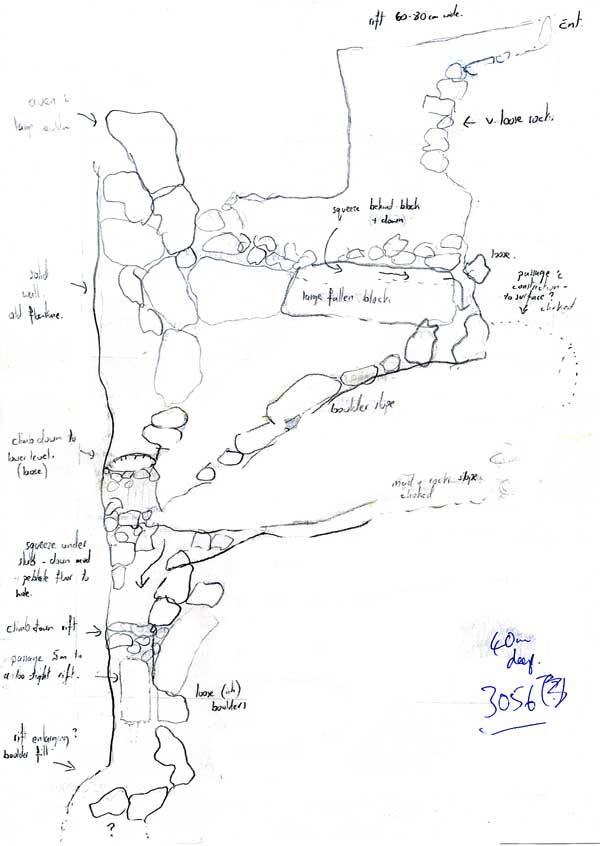 rift 60-80cm wide.
Ent.
aven &
large
v. loose rock.
squeeze behind block
+ down
loose.
passage &
constriction
to surface?
choked
large fallen block
solid
wall
old flowline.
boulder slope
climb down to
lower level.
(loose)
mud + rock slope
choked
squeeze under
slab - down mud
+ pebble floor to
hole.
climb down rift
passage 5m to
a too tight rift.
loose
boulders
40m
deep.
3056(?)
rift enlarging?
boulder fill
?